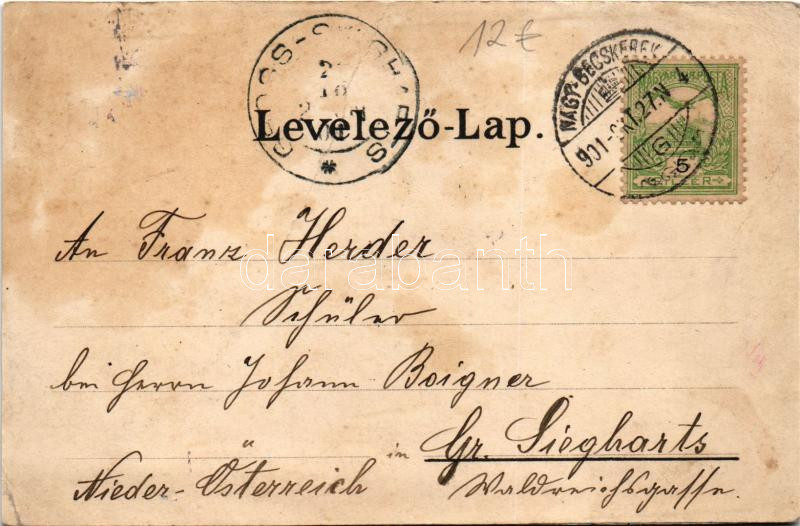 12 €
GROSS-SIEGHARTS
NAGY-BECSKEREK
901-OKT.27.N 4
5
Levelező-Lap.
An Franz Herder
Schüler
bei Herrn Johann Boigner
in Gr. Siegharts
Nieder-Österreich
Waldreichsgasse.
darabanth